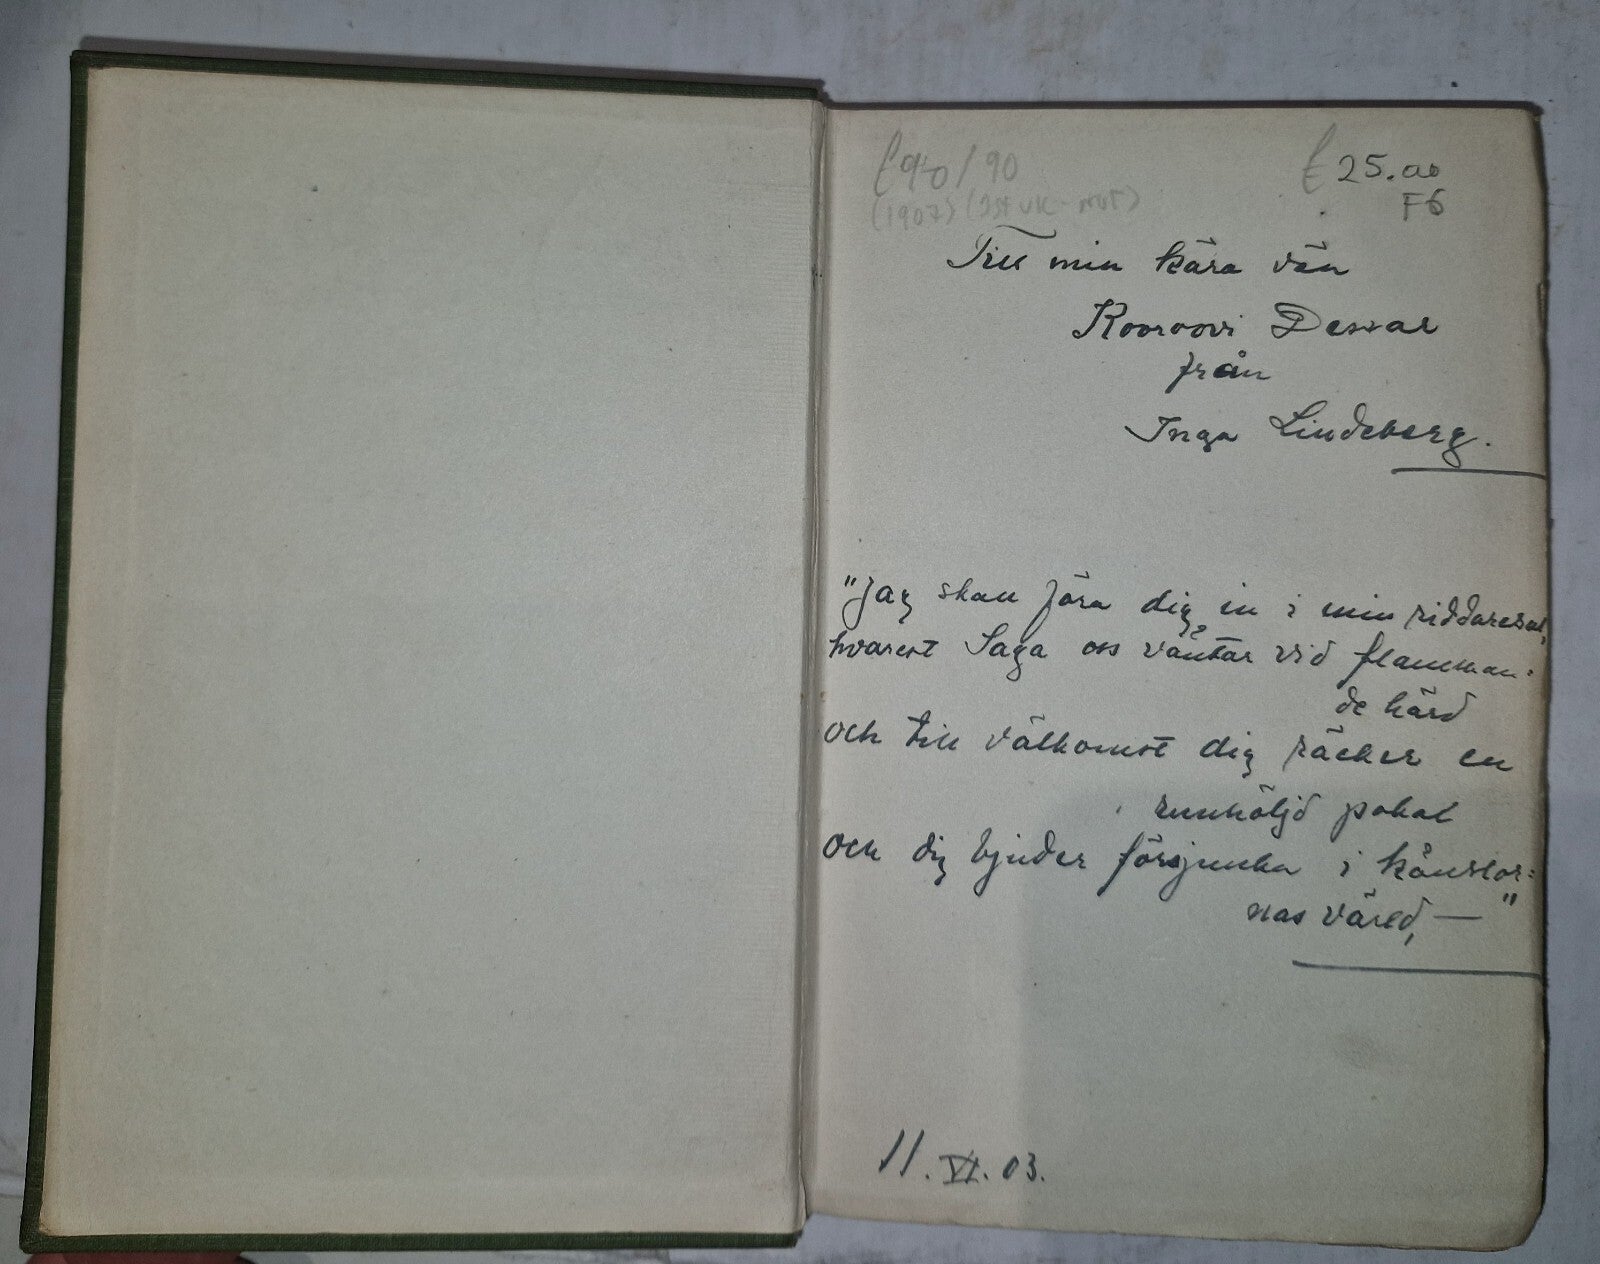 £90/90
£ 25.00
(1907) (1st UK -
F6
Till min kära vän
Rooroovi Dewar
från
Inga Lindeberg.
"Jag skall föra dig in i min riddaresal,
hvarest Saga oss väntar vid flamman:
de härd
och till välkomst dig räcker en
runhöljd pokal
och dig bjuder försjunka i känslor:
nas värld, — "
11. VI. 03.